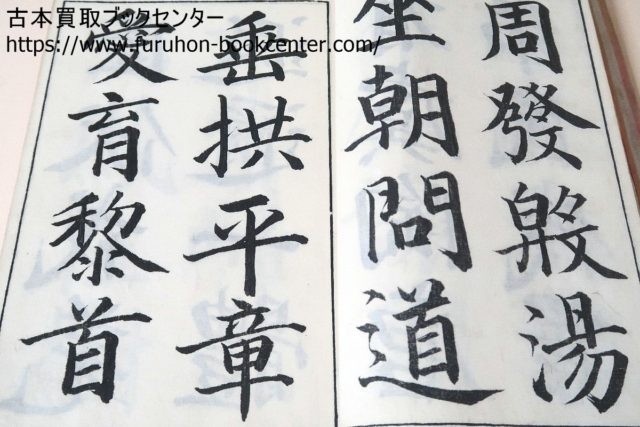 古本買取ブックセンター
https://www.furuhon-bookcenter.com/
周發殷湯
坐朝問道
垂拱平章
愛育黎首